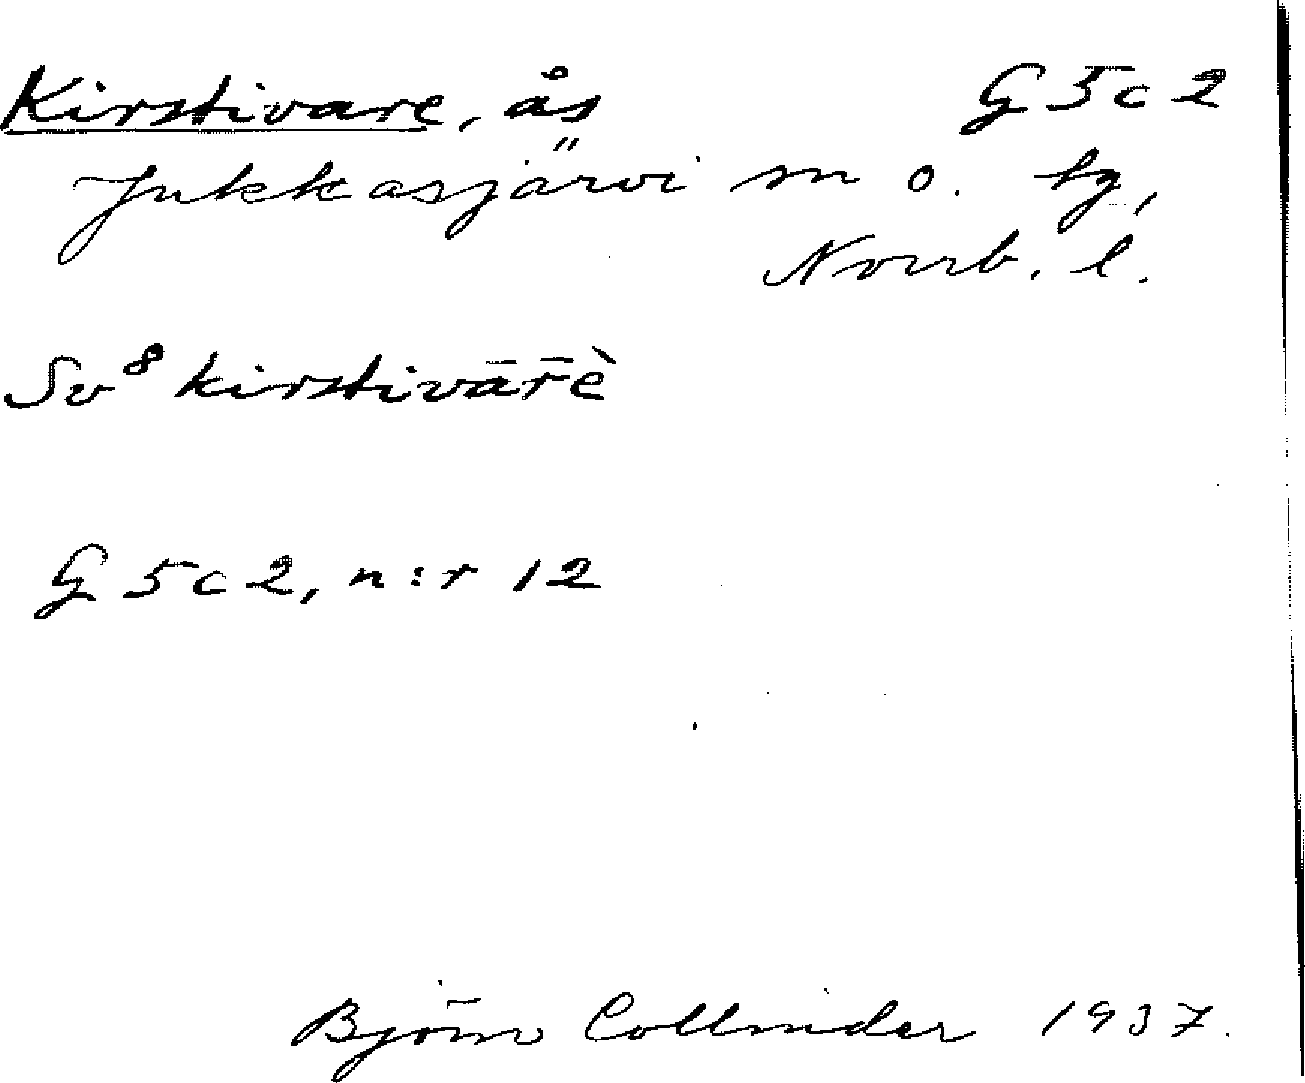 Kirstivare, ås G 5 c 2
Jukkasjärvi sn o. tg,
Norrb. l.
Sv⁸ kirstivār̄è
G 5 c 2, n:r 12
Björn Collinder 1937.